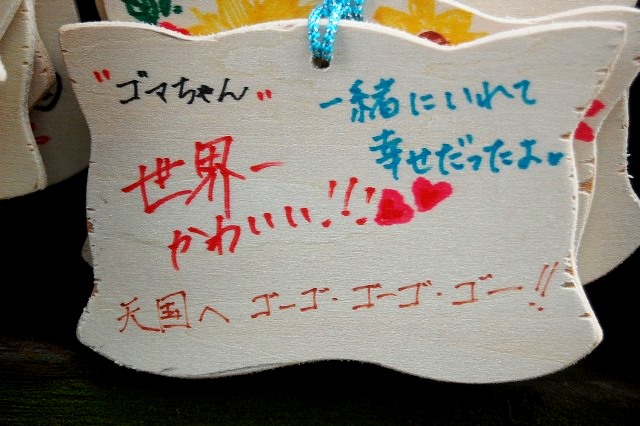 "ゴマちゃん"
一緒にいれて
幸せだったよ♥
世界一
かわいい!!!♥♥
天国へ ゴーゴ・ゴーゴ・ゴー!!